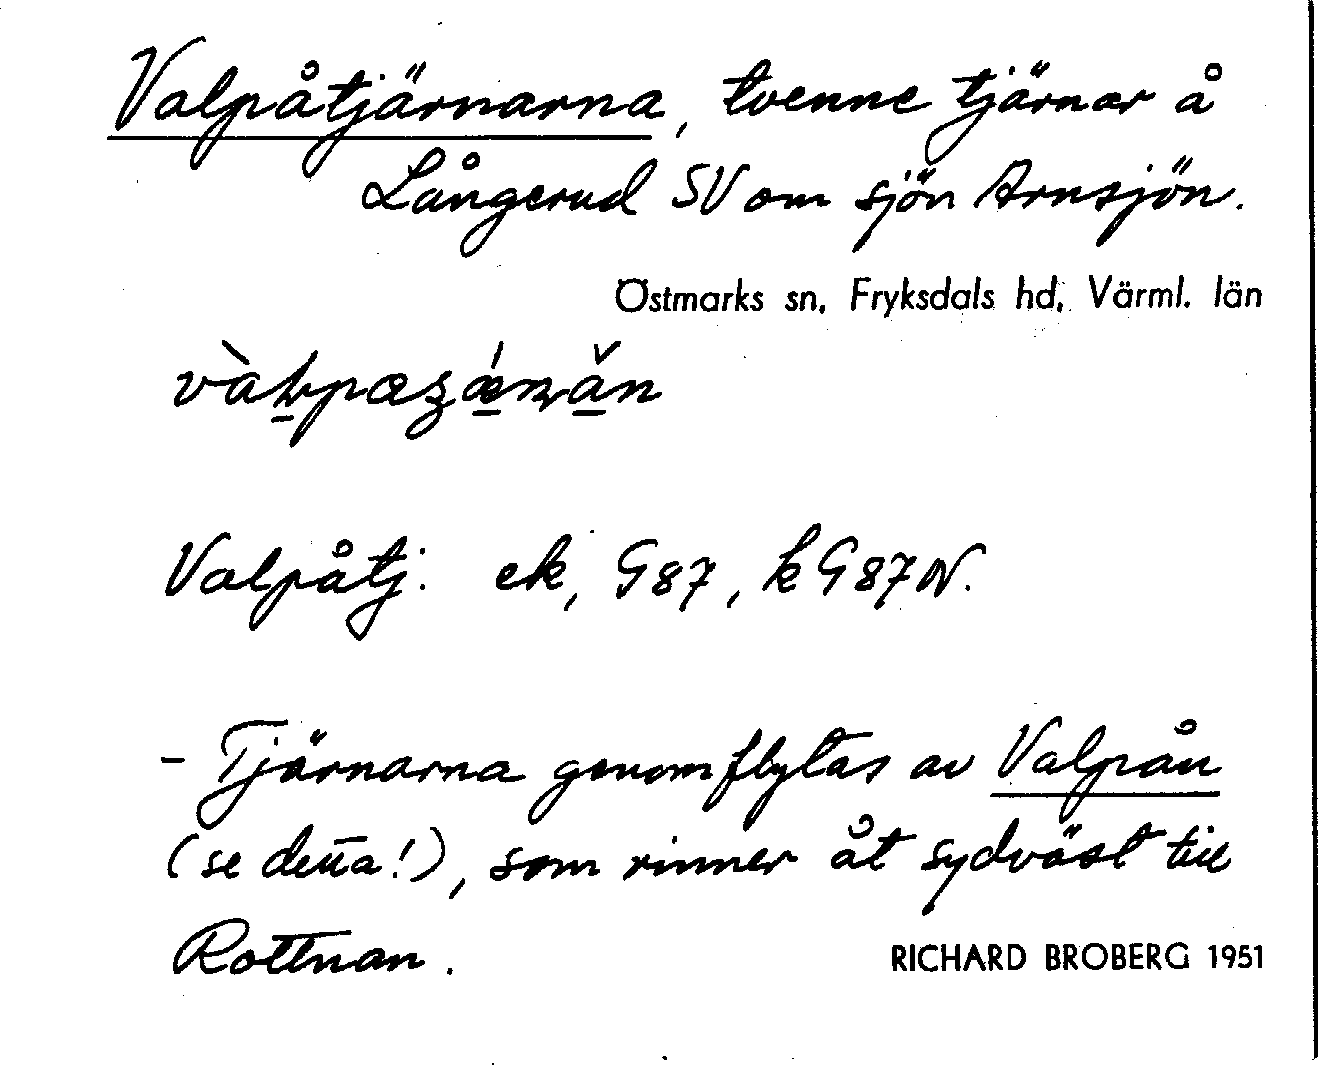 Valpåtjärnarna, tvenne tjärnar å
Långerud SV om sjön Arnsjön.
Östmarks sn, Fryksdals hd, Värml. län
Valpåtj: ek, G87, kG87N.
- Tjärnarna genomflytas av Valpån
(se detta!), som rinner åt sydväst till
Rottnan.
RICHARD BROBERG 1951